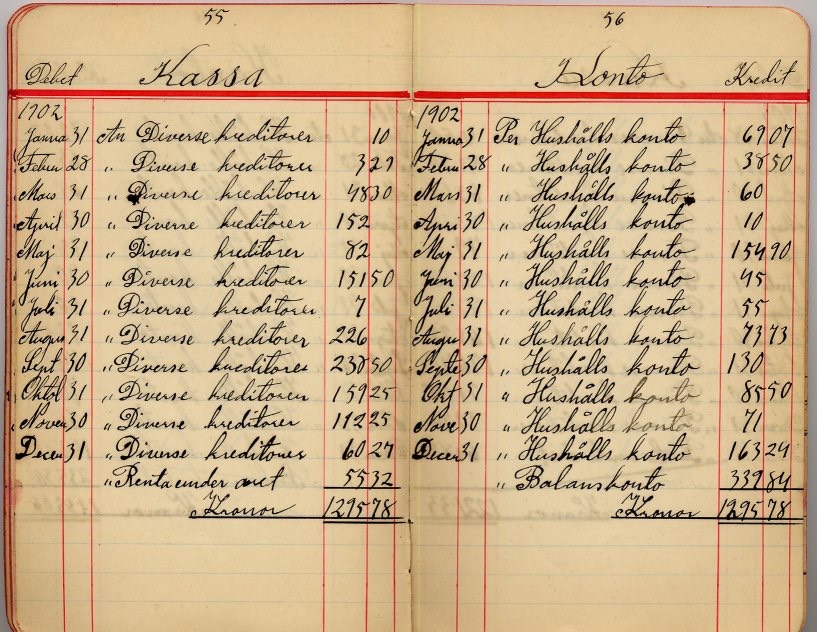 55
Debet Kassa
1902
Janua 31 An Diverse kreditorer 10
Febru 28 " Diverse kreditorer 3 29
Mars 31 " Diverse kreditorer 48 30
April 30 " Diverse kreditorer 152
Maj 31 " Diverse kreditorer 82
Juni 30 " Diverse kreditorer 151 50
Juli 31 " Diverse kreditorer 7
Augus 31 " Diverse kreditorer 226
Sept 30 " Diverse kreditorer 238 50
Oktob 31 " Diverse kreditorer 159 25
Novem 30 " Diverse kreditorer 112 25
Decem 31 " Diverse kreditorer 60 27
" Renta under året 55 32
Kronor 1295 78
56
Konto Kredit
1902
Janua 31 Per Hushålls konto 69 07
Febru 28 " Hushålls konto 38 50
Mars 31 " Hushålls konto 60
Apri 30 " Hushålls konto 10
Maj 31 " Hushålls konto 154 90
Juni 30 " Hushålls konto 45
Juli 31 " Hushålls konto 55
Augu 31 " Hushålls konto 73 73
Septe 30 " Hushålls konto 130
Okt 31 " Hushålls konto 85 50
Nove 30 " Hushålls konto 71
Decem 31 " Hushålls konto 163 24
" Balanskonto 339 84
Kronor 1295 78